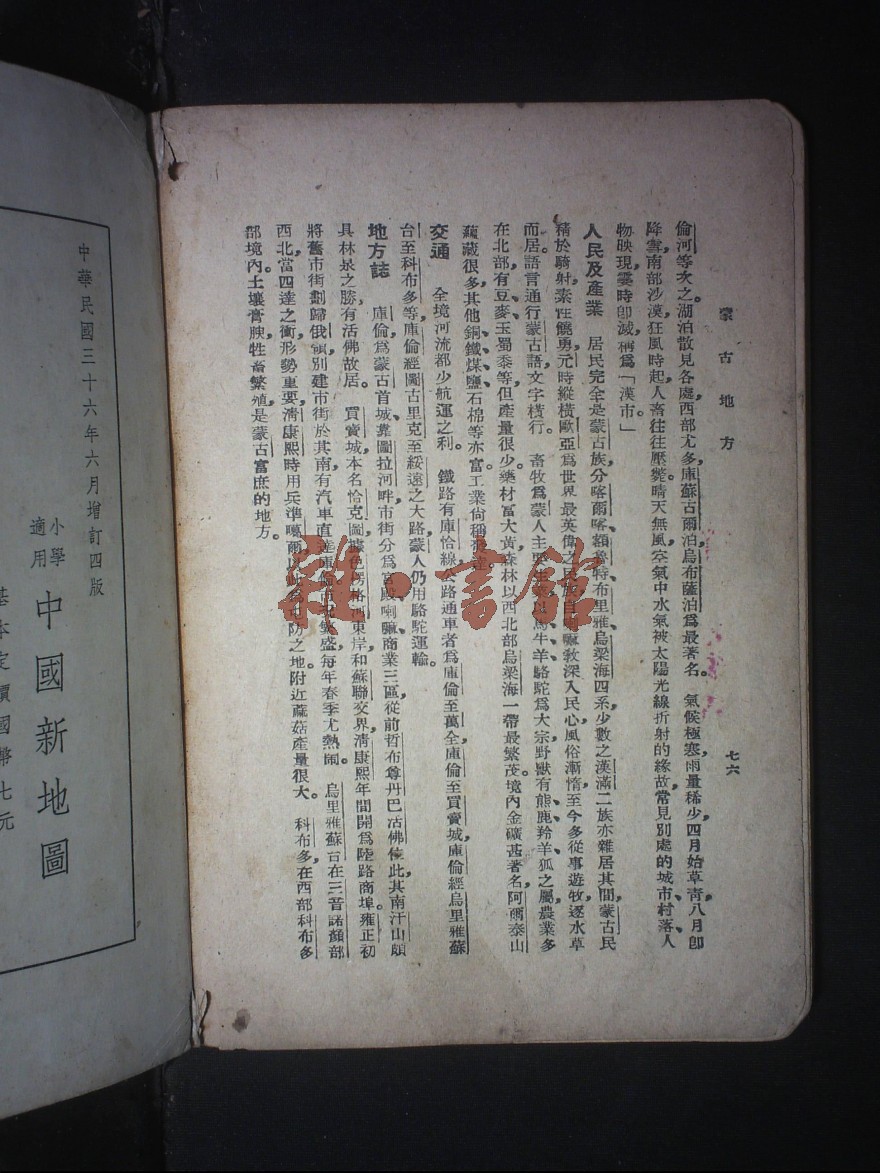 蒙古地方
七六
倫河等次之。湖泊散見各處，西部尤多，庫蘇古爾泊、烏布薩泊爲最著名。　氣候極寒，雨量稀少，四月始草青，八月卽
降雪，南部沙漠，狂風時起，人畜往往壓斃。晴天無風，空氣中水氣被太陽光線折射的緣故，常見別處的城市、村落、人
物映現，霎時卽滅，稱爲「漠市」
人民及產業　居民完全是蒙古族，分喀爾喀、額魯特、布里雅、烏梁海四系，少數之漢滿二族亦雜居其間，蒙古民
精於騎射，素性驍勇，元時縱橫歐亞，爲世界最英偉之民族，自喇嘛教深入民心，風俗漸惰，至今多從事遊牧，逐水草
而居。語言通行蒙古語，文字橫行。　畜牧爲蒙人主要生業，以馬、牛、羊、駱駝爲大宗，野獸有熊、鹿、羚羊、狐之屬，農業多
在北部，有豆、麥、玉蜀黍等，但產量很少。藥材富大黃，森林以西北部烏梁海一帶最繁茂。境內金礦甚著名，阿爾泰山
蘊藏很多，其他銅、鐵、煤、鹽、石棉等亦富。工業尙稱發達。
交通　全境河流都少航運之利。　鐵路有庫恰線，公路通車者爲庫倫至萬全、庫倫至買賣城、庫倫經烏里雅蘇
台至科布多等，庫倫經圖古里克至綏遠之大路，蒙人仍用駱駝運輸。
地方誌　庫倫爲蒙古首城，靠圖拉河畔，市街分爲宮殿、喇嘛、商業三區，從前哲布尊丹巴活佛住此，其南汗山頗
具林泉之勝，有活佛故居。　買賣城本名恰克圖，據色楞格河東岸，和蘇聯交界，淸康熙年間開爲陸路商埠，雍正初
將舊市街劃歸俄領，別建市街於其南，有汽車直達庫倫，市況繁盛，每年春季尤熱鬧。　烏里雅蘇台在三音諾顏部
西北，當四達之衝，形勢重要，淸康熙時用兵準噶爾，以此爲重防之地，附近蘑菇產量很大。　科布多在西部科布多
部境內，土壤膏腴，牲畜繁殖，是蒙古富庶的地方。
雜·書館
中華民國三十六年六月增訂四版
小學適用
中國新地圖
基本定價國幣七元